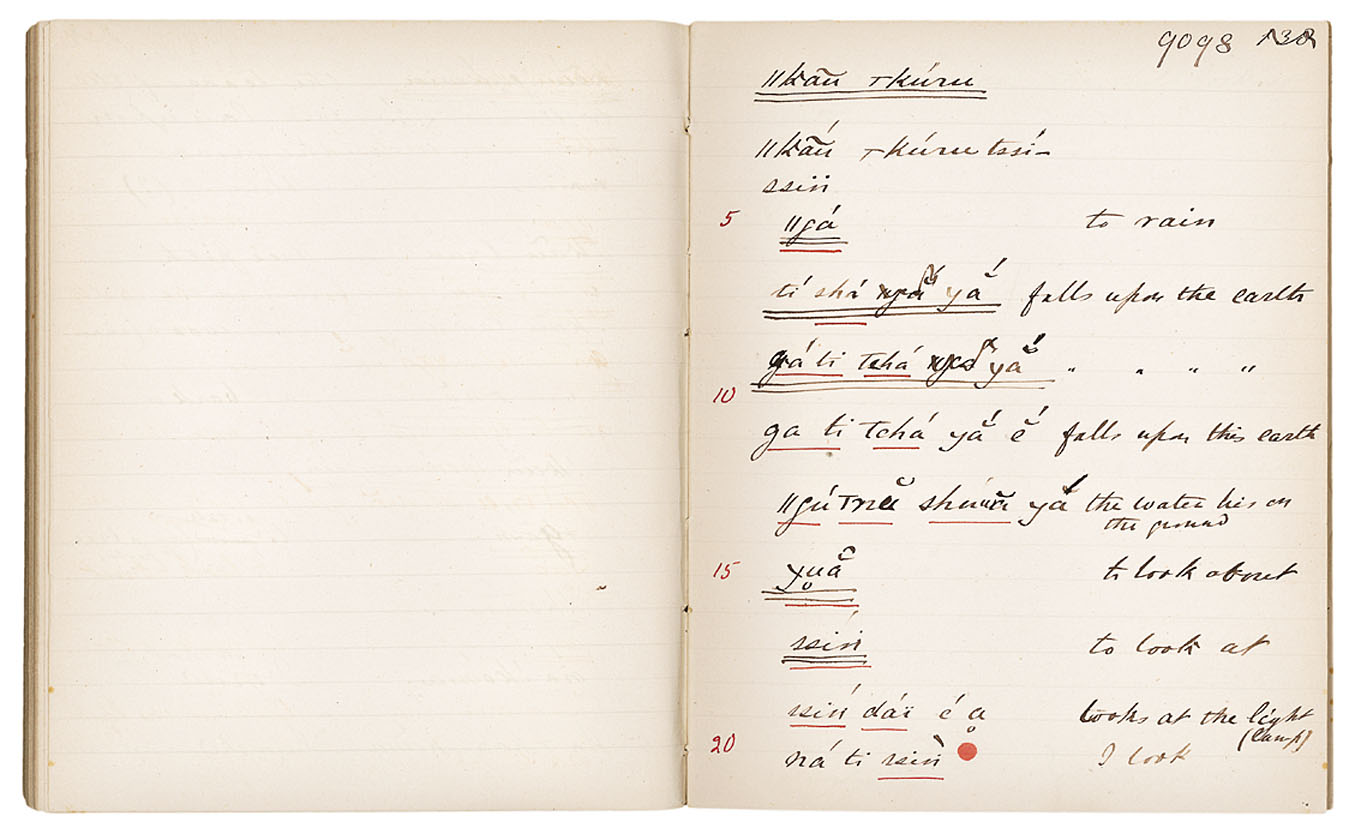 9098
ǁkãũ ⊤kúru
ǁkãũ ⊤kúru tssí-
ssiṅ
5 ǁgá to rain
tí shá yắ falls upon the earth
gá ti tchá yắ " " " "
10
ga ti tchá yắ ĕ́ falls upon this earth
ǁgú shúwă the water lies on
the ground
15 χuă to look about
ssiṅ́ to look at
ssiṅ́ dáï é ḁ looks at the light
(lamp)
20 ná ti ssiṅ̀ I look